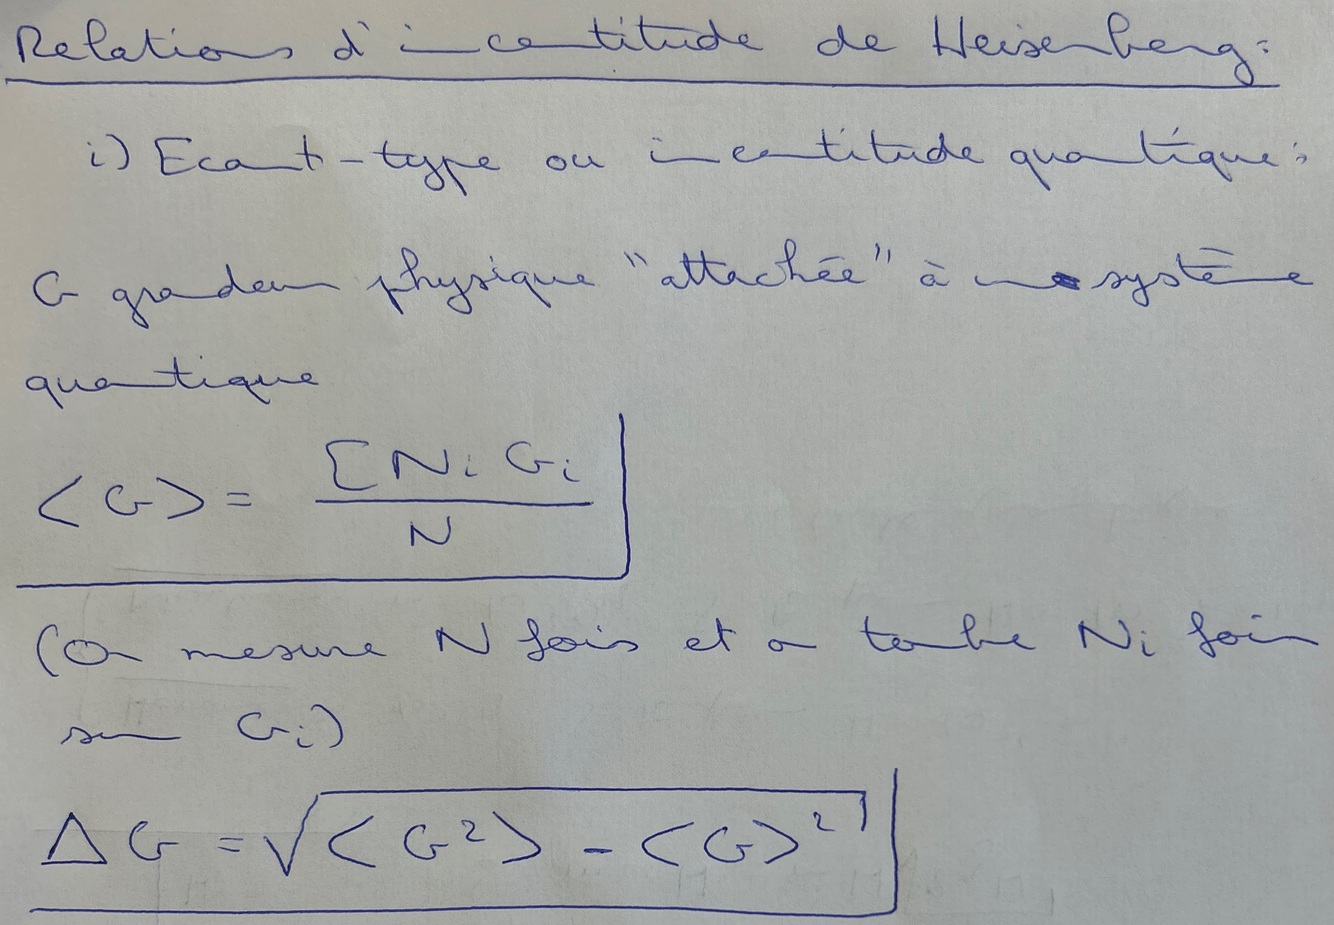 Relations d'incertitude de Heisenberg :
i) Ecart-type ou incertitude quantique :
G grandeur physique "attachée" à un système
quantique
<G> = Σ Ni Gi / N
(On mesure N fois et on tombe Ni fois
sur Gi)
Δ G = √(<G²> - <G>²)